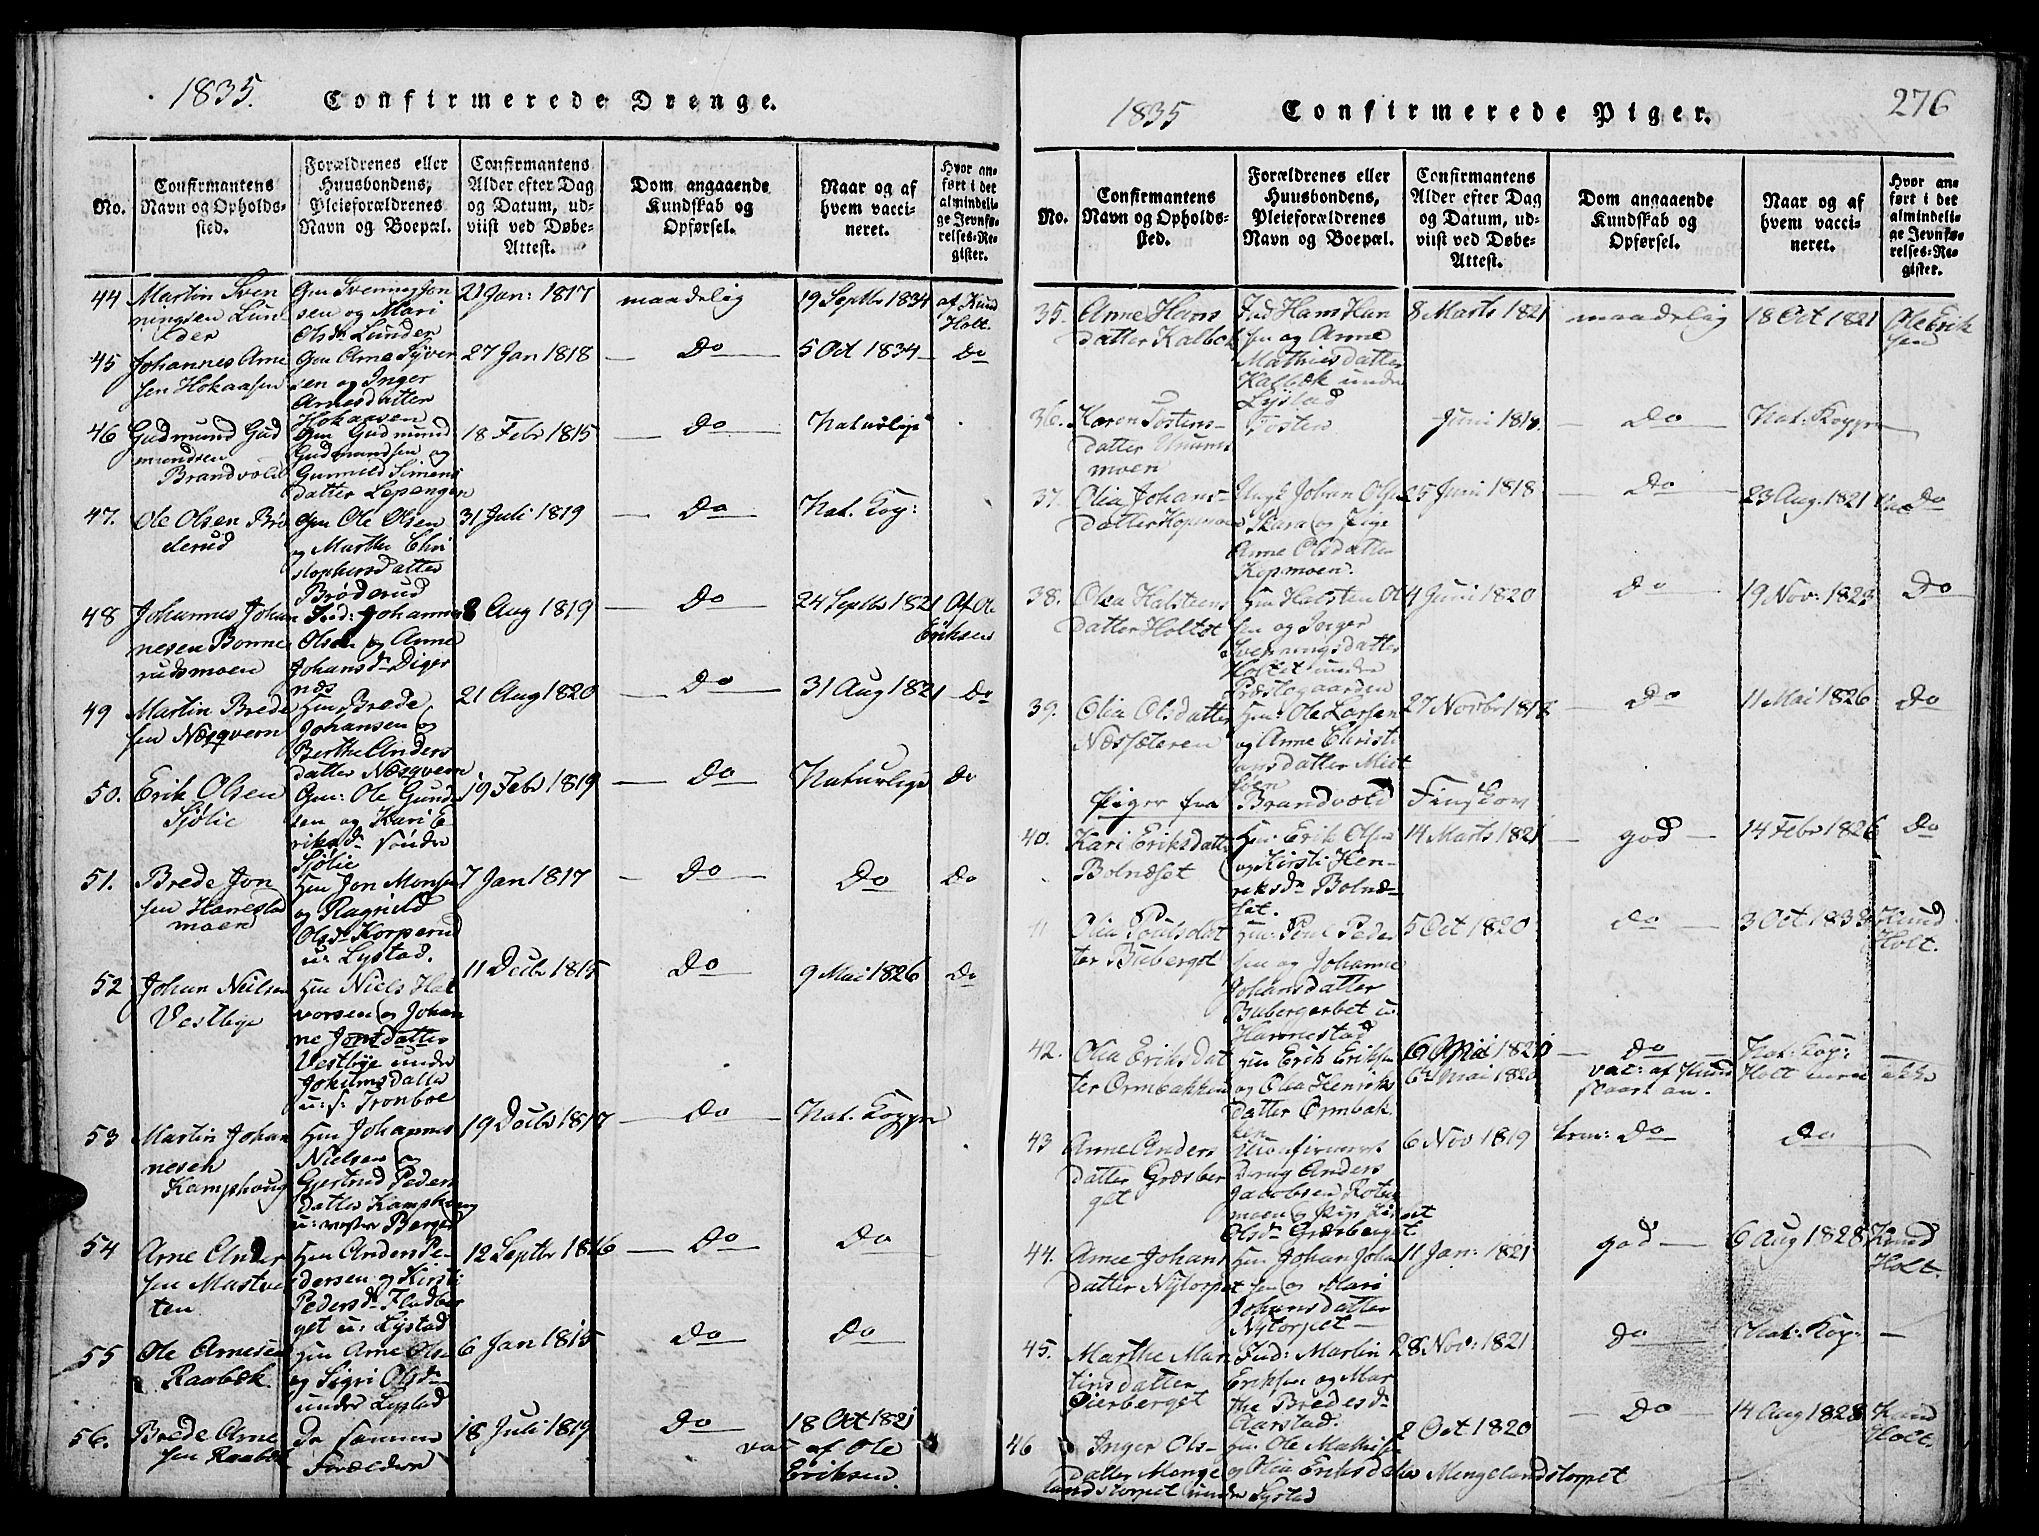 1835. Confirmerede Drenge.
No.
Confirmantens
Navn og Opholds-
sted.
Forældrenes eller
Huusbondens,
Pleieforældrenes
Navn og Boepæl.
Confirmantens
Alder efter Dag
og Datum, ud-
viist ved Døbe-
Attest.
Dom angaaende
Kundskab og
Opførsel.
Naar og af
hvem vacci-
neret.
Hvor an-
ført i det
almindeli-
ge Jevnfø-
relses-Re-
gister.
44
Martin Sven
ningsen Lun-
der
Gm Svenning Jon
sen og Mari
Olsdr Lunder
21 Jan: 1817
maadelig
19 Septbr 1834
af Knud
Holt.
45
Johannes Arne
sen Hokaasen
Gm Arne Syver
sen og Inger
Arnesdatter
Hokaasen
27 Jan 1818
Do
5 Oct 1834
Do
46
Gudmund Gud
mundsen
Brandvold
Gm Gudmund
Gudmundsen og
Gunnild Simens
datter Lepengen
18 Febr 1815
Do
Naturlige
47.
Ole Olsen Brö
derud
Gm Ole Olsen
og Marthe Chri
stophersdatter
Bröderud
31 Juli 1819
Do
Nat. Kop:
48
Johannes Johan
nesen Bonne
rudsmoen
Ind: Johannes
Olsen og Anne
Johansdr Diger
næs
8 Aug 1819
Do
24 Septbr 1821
Af Ole
Eriksen
49
Martin Brede
sen Næsqvern
Hm Brede
Johansen og
Berthe Anders
datter Næsqvern
21 Aug 1820
Do
31 Aug 1821
Do
50.
Erik Olsen
Sjölie
Gm: Ole Gund
sen og Kari E-
riksdr söndre
Sjölie
19 Febr 1819
Do
Naturlige
Do
51.
Brede Jon
sen Harrestad
moen
Hm Jon Monsen
og Ragnild
Olsdr Korperud
u: Lystad.
7 Jan 1817
Do
Do
Do
52
Johan Nielsen
Vestbye
Hm Niels Hal
vorsen og Johan
ne Jonsdatter
Vestbye under
11 Decbr 1815
Do
9 Mai 1826
Do
53
Martin Johan
nesen
Kamphoug
Hm Johannes
Nielsen og
Gjertrud Peders
datter Kamphoug
u: Berger
19 Decbr 1817
Do
Nat. Kopper
54
Arne Ander
sen Mastve
ten
Hm Anders Pe-
dersen og Kirsti
Pedersdr Fludber
get u: Lystad
12 Septbr 1816
Do
Do
55
Ole Arnesen
Raabæk
Hm Arne Olse
og Sigri Olsdr
under Lystad
6 Jan 1815
Do
Do
56.
Brede Arne
sen Raabæk
De samme
Forældre
18 Juli 1819
Do
18 Oct 1821
vac af Ole
Eriksen.
1835 Confirmerede Piger. 276
No.
Confirmantens
Navn og Opholds-
sted.
Forældrenes eller
Huusbondens,
Pleieforældrenes
Navn og Boepæl.
Confirmantens
Alder efter Dag
og Datum, ud-
viist ved Døbe-
Attest.
Dom angaaende
Kundskab og
Opførsel.
Naar og af
hvem vacci-
neret.
Hvor an-
ført i det
almindeli-
ge Jevnfø-
relses-Re-
gister.
35.
Anne Hans
datter Kalbek
Ind Hans Han
sen og Anne
Mathiesdatter
Kalbek under
Lystad
8 Marts 1821
maadelig
18 Oct 1821
Ole Erik
sen
36.
Karen Tostens-
datter
moen
Tosten
Juni
Do
Nat: Kopper
37.
Olia Johans-
datter Kopmoen
Ungk Johan Olsen
Skara og Pige
Anne Olsdatter
Kopmoen.
25 Juni 1818
Do
23 Aug. 1821
Do
38.
Olea Halsteens
datter Holtet
Hm Halsten Ol
sen og
Sveningsdatter
Holtet under
Præstegaarden
4 Juni 1820
Do
19 Nov:
Do
39.
Olia Olsdatter
Næssæteren
Hm: Ole Larsen
og Anne Christi
ansdatter
27 Novbr
Do
11 Mai 1826
Do
Piger fra Brandvold Finskov
40.
Kari Eriksdatter
Bolnæset
Hm: Erik Olsen
og Kirsti Hen-
riksdr Bolnæ-
set.
14 Marts 1821
god
14 Febr 1826
Do
Olia Poulsdat
ter Buberget
Hm: Poul Peder
sen og Johanne
Johansdatter
Buberget u:
Harrestad
5 Oct 1820
Do
3 Oct
Knud
Holt.
42.
Olia Eriksdat
ter Ormbakken
Hm Erik Eriksen
og Olea Henriks
datter Ormbak
ken
6 Mai 1820
Do
Nat: Kop:
vac: af Knud
Holt
43
Anne Anders
datter Græsber
get
Uconfirmeret
Dreng Anders
Jacobsen
moen og Pige
Olsdr Græsberget.
6 Nov 1819
Do
Do
44.
Anne Johans
datter Nytorpet
Hm Johan Joha
sen og Mari
Johansdatter
Nytorpet
11 Jan: 1821
god
6 Aug 1828
Knud
Holt.
45.
Marthe Mar
tinsdatter
Eierberget
Ind: Martin
Eriksen og Mar
the Bredesdr
Aarstad.
28 Nov: 1821
Do
Nat: Kop:
46
Inger Ols-
datter Menge
landstorpet under Lystad
Hm: Ole Mathise
og Olia Eriksdatter Mengelandstorpet
2 Oct 1820
Do
14 Aug 1828
Knud
Holt.